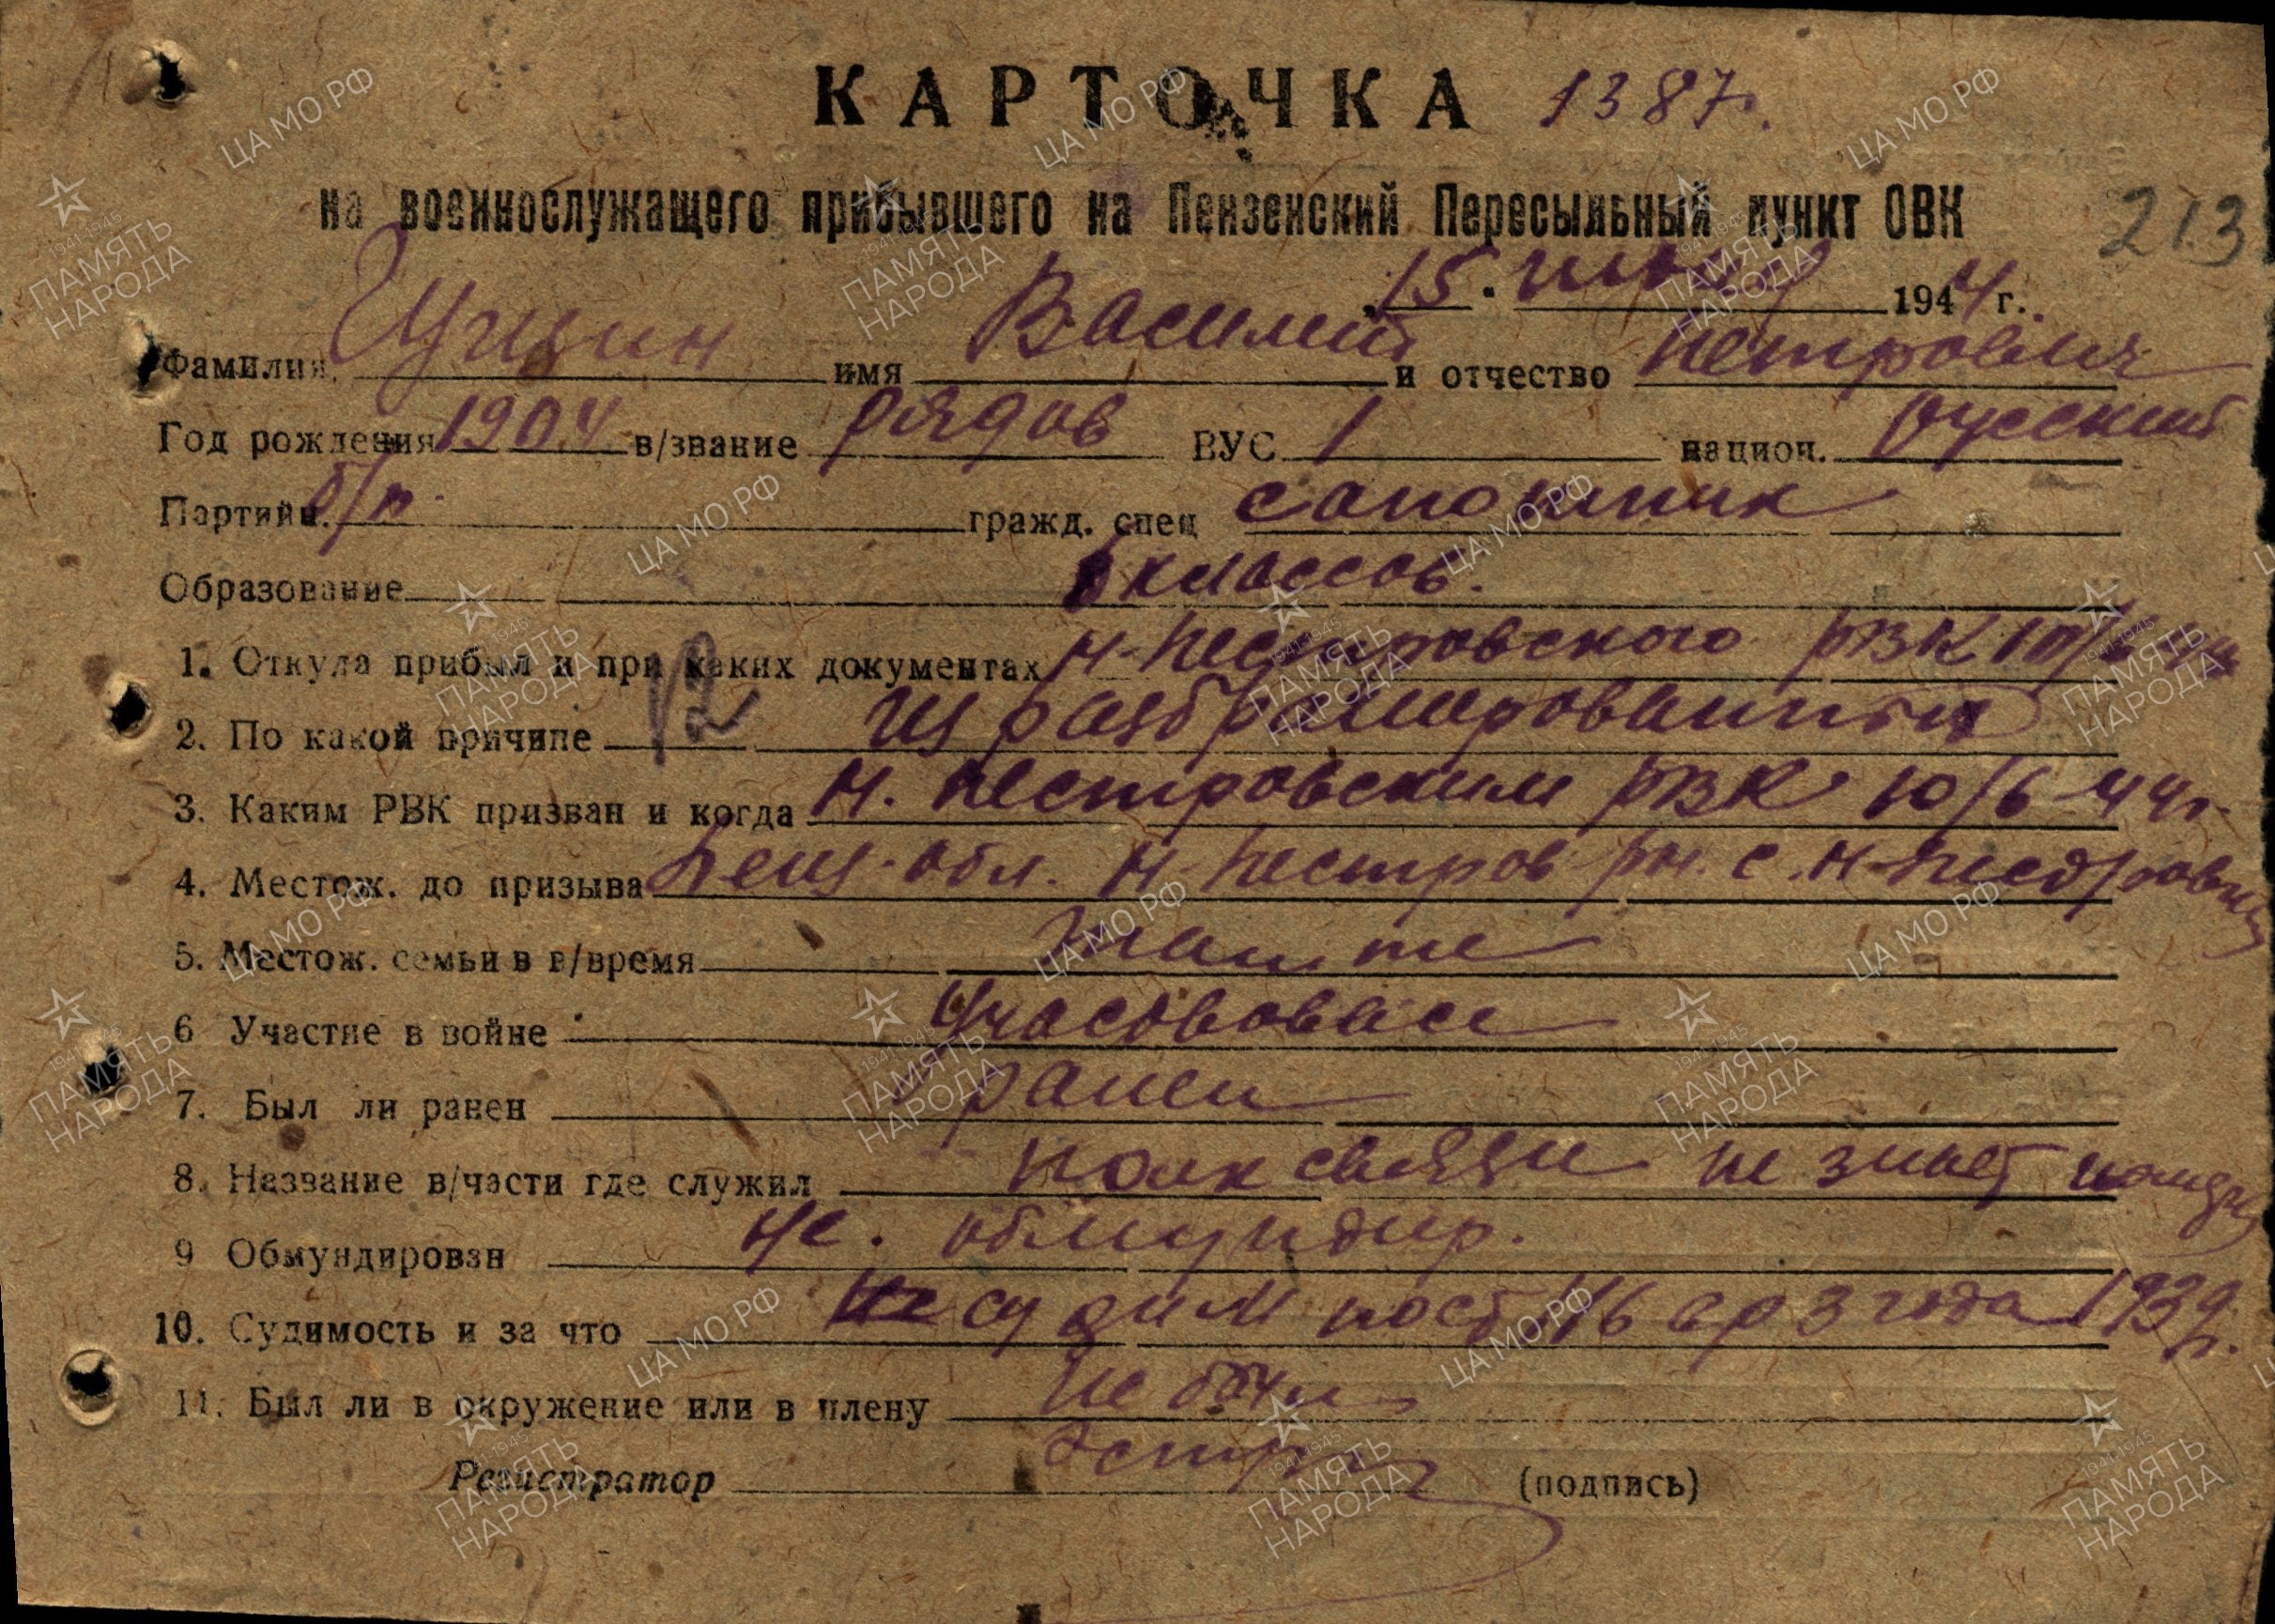 КАРТОЧКА 1387.
на военнослужащего прибывшего на Пензенский Пересыльный пункт ОВК
213
15. июня 1944 г.
Фамилия имя Василий и отчество Петрович
Год рождения 1904 в/звание рядов ВУС 1 национ. Русский
Партийн. б/п. гражд. спец сапожник
Образование классов.
1. Откуда прибыл и при каких документах Н-Пестровского РВК
2. По какой причине 12 из разбронированных
3. Каким РВК призван и когда Н. Пестровским РВК 10/6-44г.
4. Местож. до призыва Пенз. обл. Н-Пестров рн. с. Н-Пестровка
5. Местож. семьи в в/время
6 Участие в войне участвовал
7. Был ли ранен ранен
8. Название в/части где служил полк связи не знает
9 Обмундирован не. обмундир.
10. Судимость и за что судим пост. 16 3 года 1939г.
11. Был ли в окружение или в плену не был
Регистратор (подпись)
ЦА МО РФ
1941-1945
ПАМЯТЬ
НАРОДА